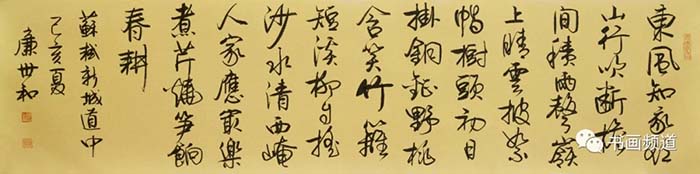 東風知我欲
山行吹斷簷
間積雨聲嶺
上晴雲披絮
帽樹頭初日
掛銅鉦野桃
含笑竹籬
短溪柳自搖
沙水清西崦
人家應最樂
煮芹燒筍餉
春耕
蘇軾新城道中
己亥夏
廉世和
书画频道